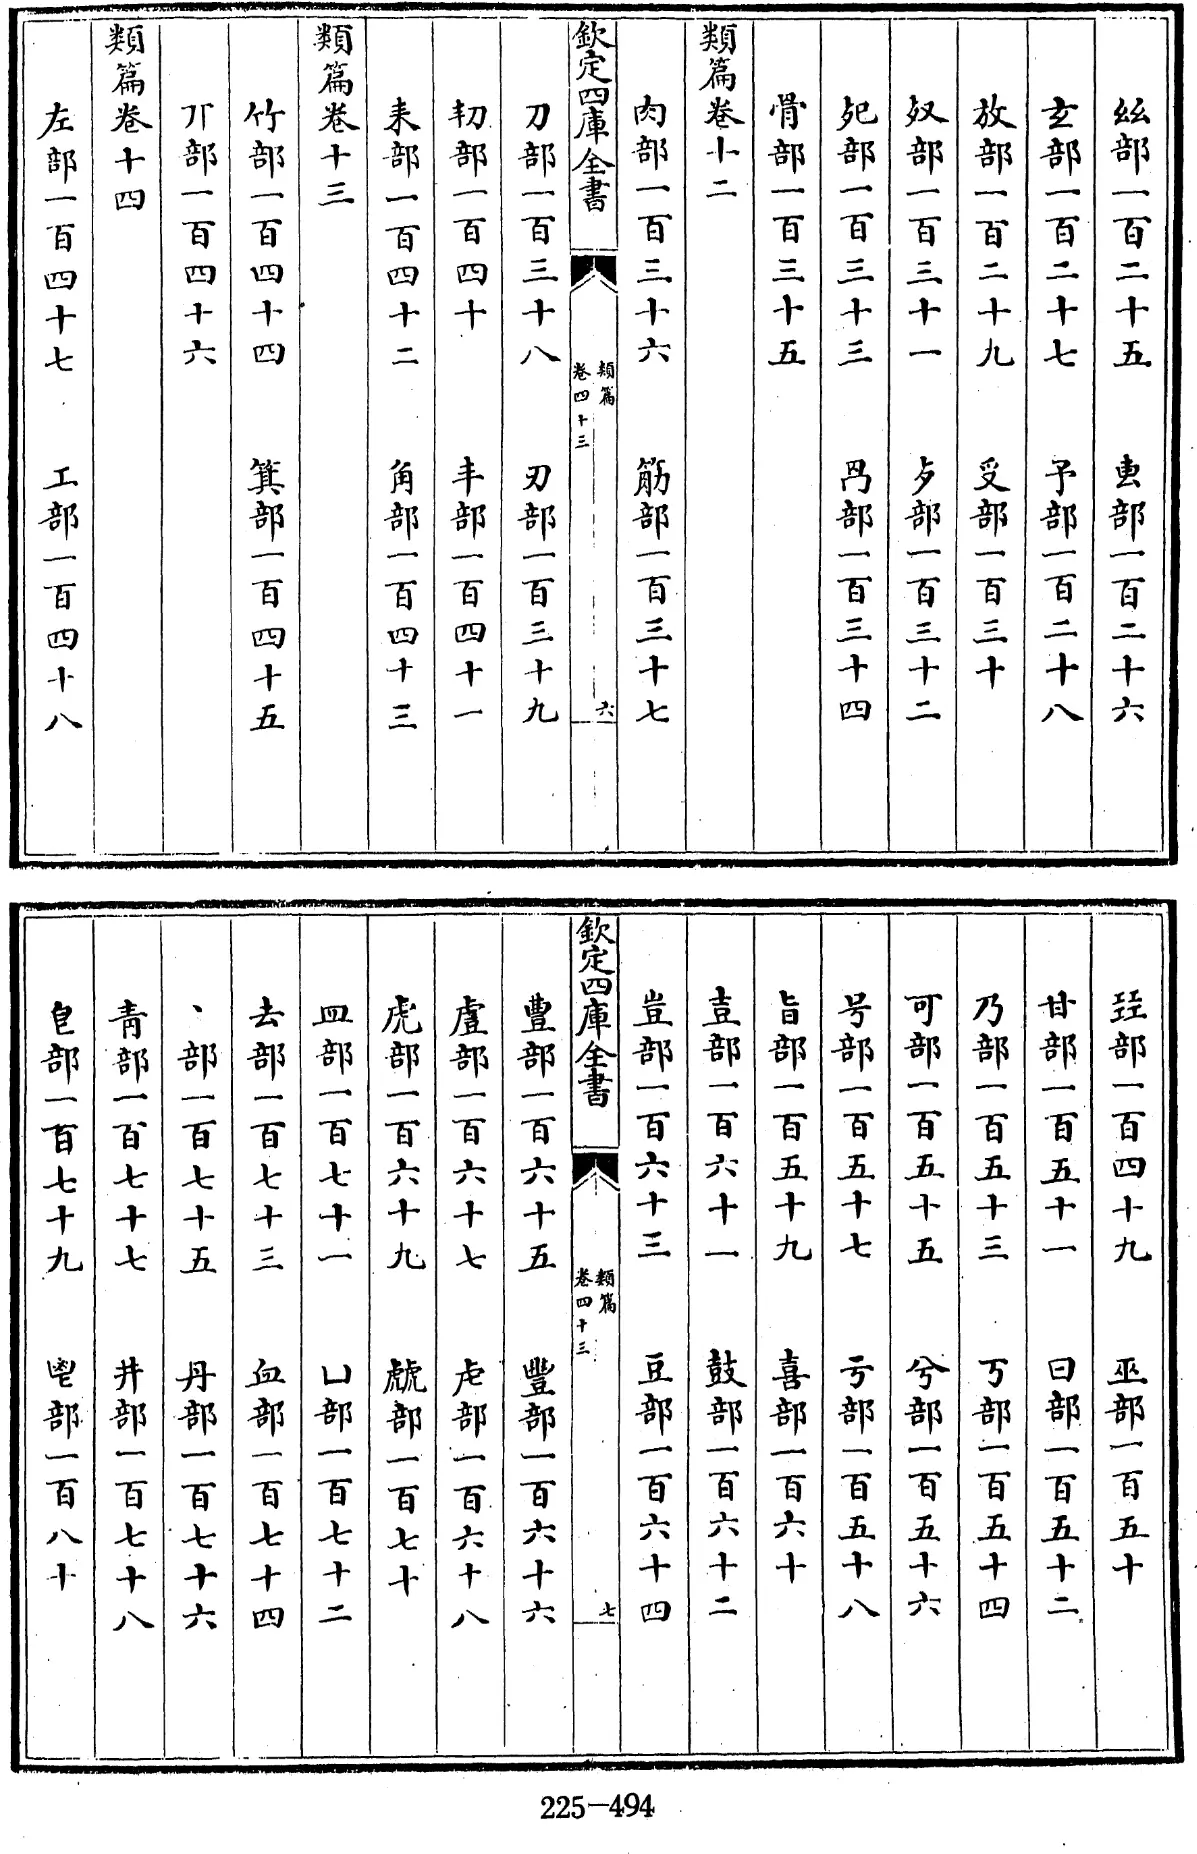 𢆶部一百二十五 叀部一百二十六
玄部一百二十七 予部一百二十八
放部一百二十九 𠬪部一百三十
𣦼部一百三十一 歺部一百三十二
死部一百三十三 冎部一百三十四
骨部一百三十五
類篇卷十二
肉部一百三十六 筋部一百三十七
欽定四庫全書
類篇
卷四十三
六
刀部一百三十八 刃部一百三十九
㓞部一百四十 丯部一百四十一
耒部一百四十二 角部一百四十三
類篇卷十三
竹部一百四十四 箕部一百四十五
丌部一百四十六
類篇卷十四
左部一百四十七 工部一百四十八
㠭部一百四十九 巫部一百五十
甘部一百五十一 曰部一百五十二
乃部一百五十三 丂部一百五十四
可部一百五十五 兮部一百五十六
号部一百五十七 亏部一百五十八
旨部一百五十九 喜部一百六十
壴部一百六十一 鼓部一百六十二
豈部一百六十三 豆部一百六十四
欽定四庫全書
類篇
卷四十三
七
豊部一百六十五 豐部一百六十六
䖒部一百六十七 虍部一百六十八
虎部一百六十九 虤部一百七十
皿部一百七十一 凵部一百七十二
去部一百七十三 血部一百七十四
丶部一百七十五 丹部一百七十六
青部一百七十七 井部一百七十八
皀部一百七十九 鬯部一百八十
225-494